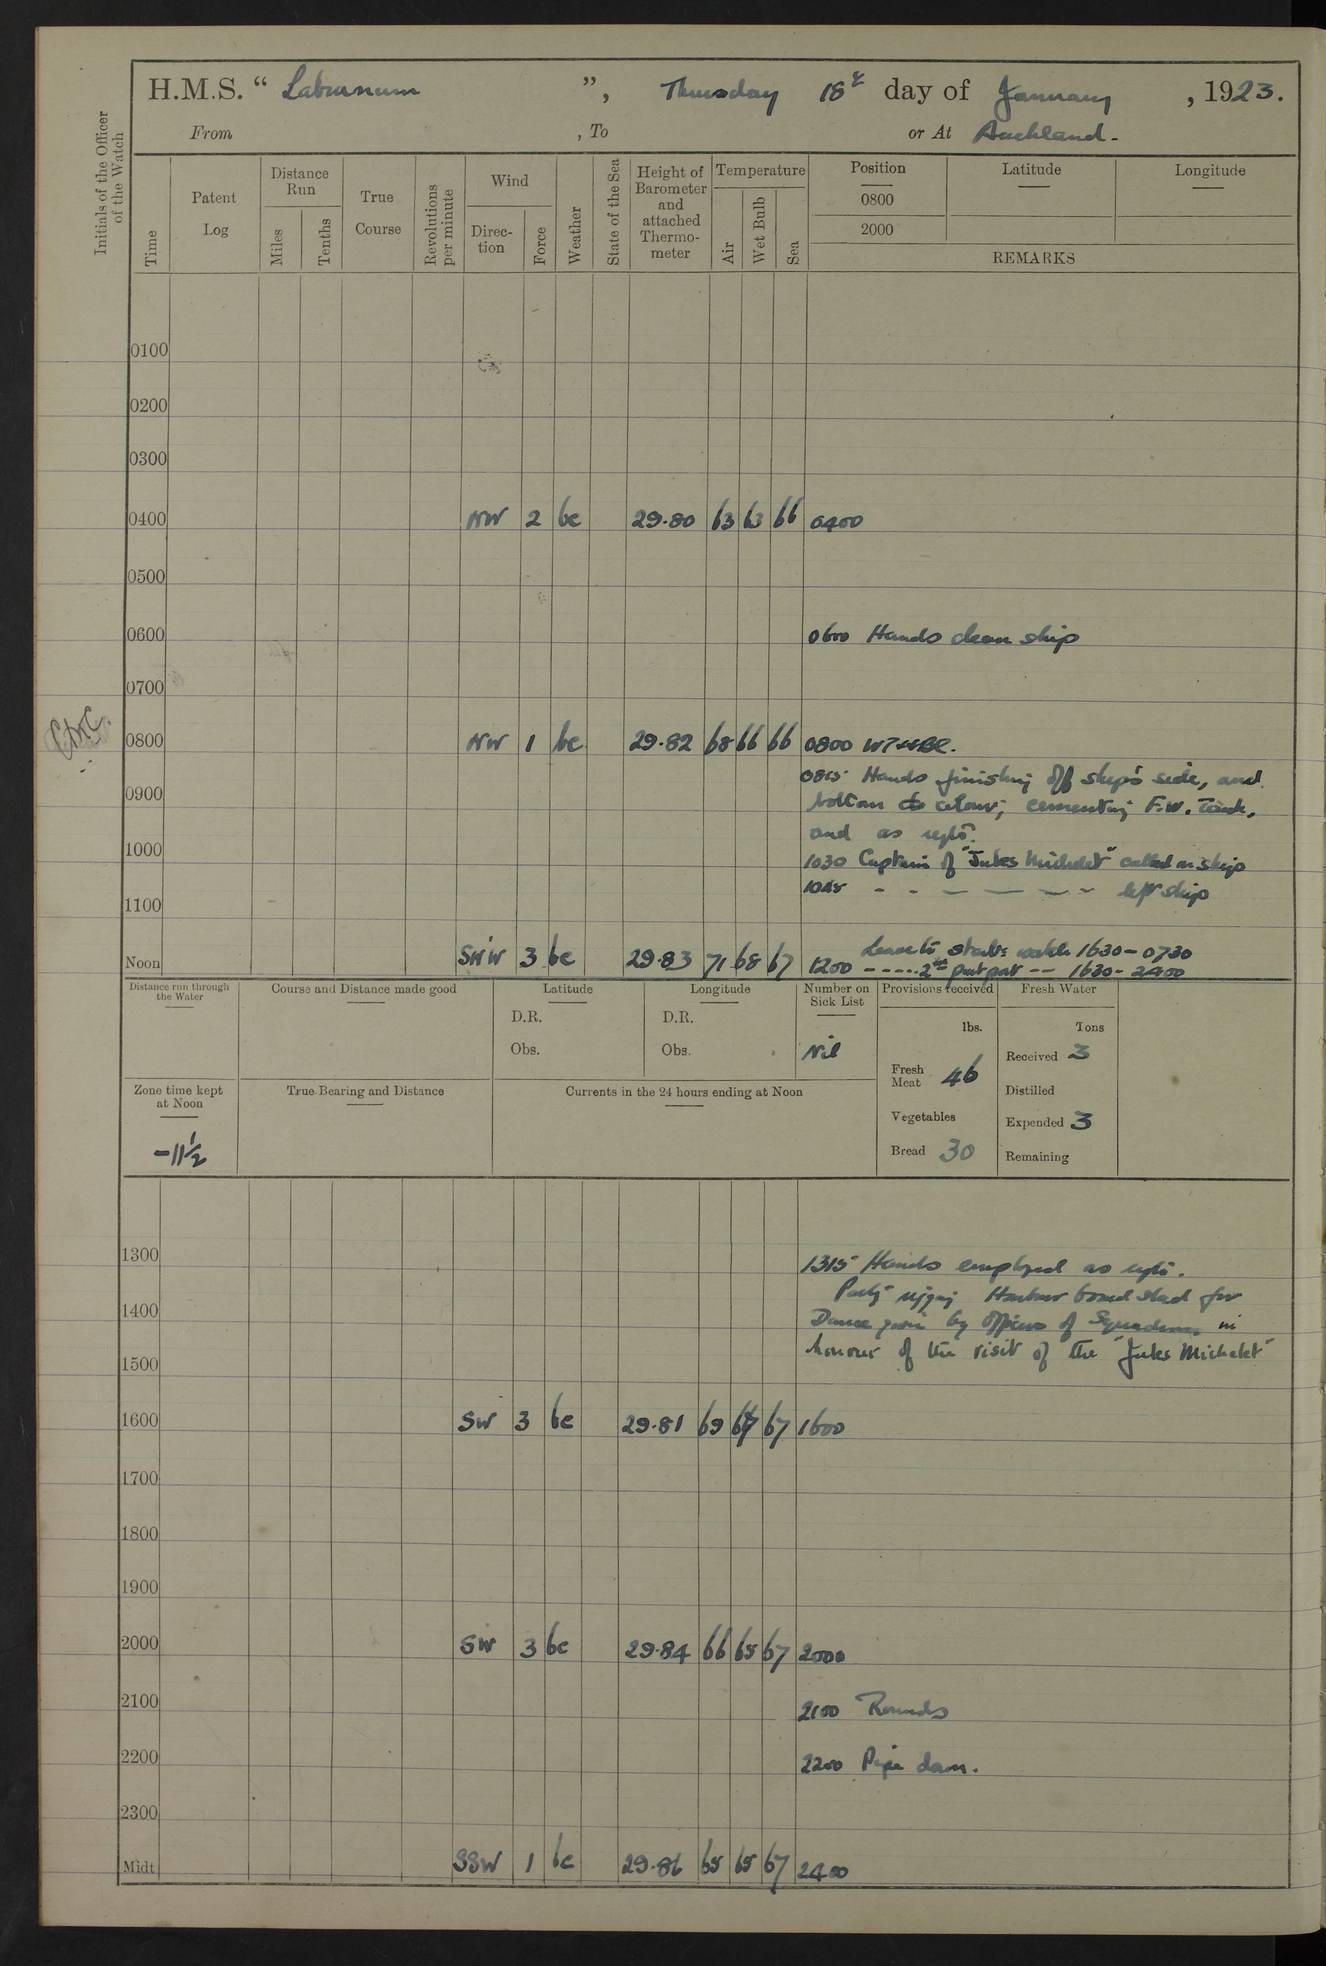 H.M.S. “ Laburnum ”, Thursday 18th day of January , 1923.
From , To or At Auckland.
Initials of the Officer of the Watch
Time
Patent Log
Distance Run
Miles
Tenths
True Course
Revolutions per minute
Wind
Direc-tion
Force
Weather
State of the Sea
Height of Barometer and attached Thermo-meter
Temperature
Air
Wet Bulb
Sea
Position
0800
2000
Latitude
Longitude
REMARKS
0100
0200
0300
0400 NW 2 bc 29.80 63 63 66 0400
0500
0600 0600 Hands clean ship
0700
0800 NW 1 bc 29.82 68 66 66 0800
0815 Hands finishing off ship's side, and
0900 bottom colour; cementing F.W. Tank,
and as reqte.
1000 1030 Captain of "Jules Michelet" called on ship
1045 - - - - - - left ship
1100
Leave to starbd: watch 1630-0730
Noon SW'W 3 bc 29.83 71 68 67 1200 ------ 2nd part port -- 1630-2400
Distance run through the Water
Course and Distance made good
Latitude
D.R.
Obs.
Longitude
D.R.
Obs.
Number on Sick List
Nil
Provisions received
lbs.
Fresh Meat 46
Vegetables
Bread 30
Fresh Water
Tons
Received 3
Distilled
Expended 3
Remaining
Zone time kept at Noon
-11½
True Bearing and Distance
Currents in the 24 hours ending at Noon
1300 1315 Hands employed as reqte.
Party rigging Harbour board shed for
1400 Dance given by Officers of Squadron in
1500 honour of the visit of the "Jules Michelet"
1600 SW 3 bc 29.81 69 67 1600
1700
1800
1900
2000 SW 3 bc 29.84 66 65 67 2000
2100 2100 Rounds
2200 2200 Pipe down.
2300
Midt. SSW 1 bc 29.86 65 65 67 2400